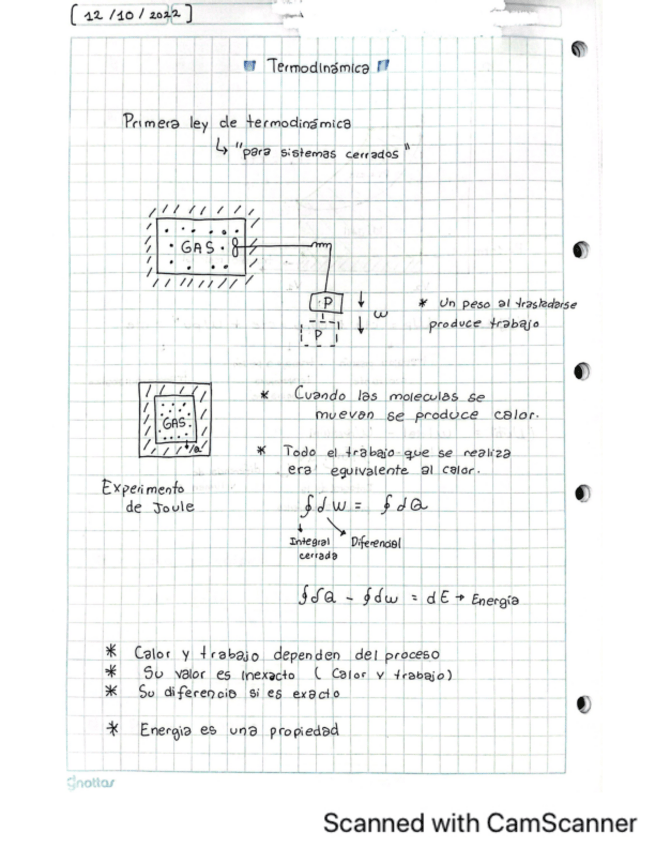 [ 12/10/2022 ]
Termodinámica
Primera ley de termodinámica
↳ "para sistemas cerrados"
GAS
P
P
w
* Un peso al trasladarse
produce trabajo
GAS
Q
* Cuando las moleculas se
muevan se produce calor.
* Todo el trabajo que se realiza
era equivalente al calor.
Experimento
de Joule
∮ δw = ∮ δQ
Integral
cerrada
Diferencial
∮δQ - ∮δw = dE → Energía
* Calor y trabajo dependen del proceso
* Su valor es inexacto ( Calor y trabajo)
* Su diferencia si es exacto
* Energia es una propiedad
Gnottas
Scanned with CamScanner